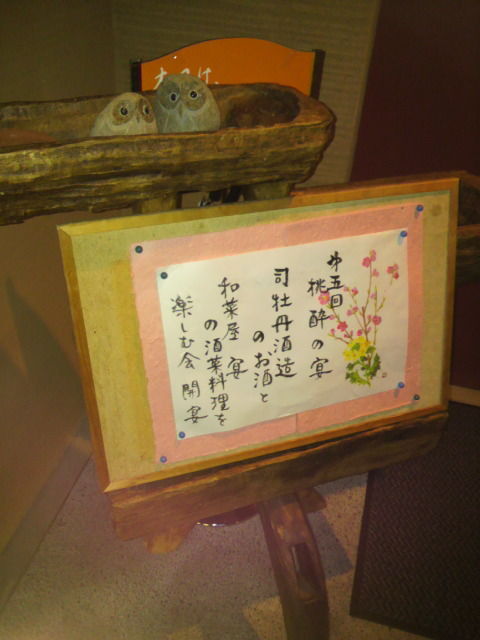 第五回
桃酔の宴
司牡丹酒造
のお酒と
和菜屋 宴
の酒菜料理を
楽しむ会 開宴